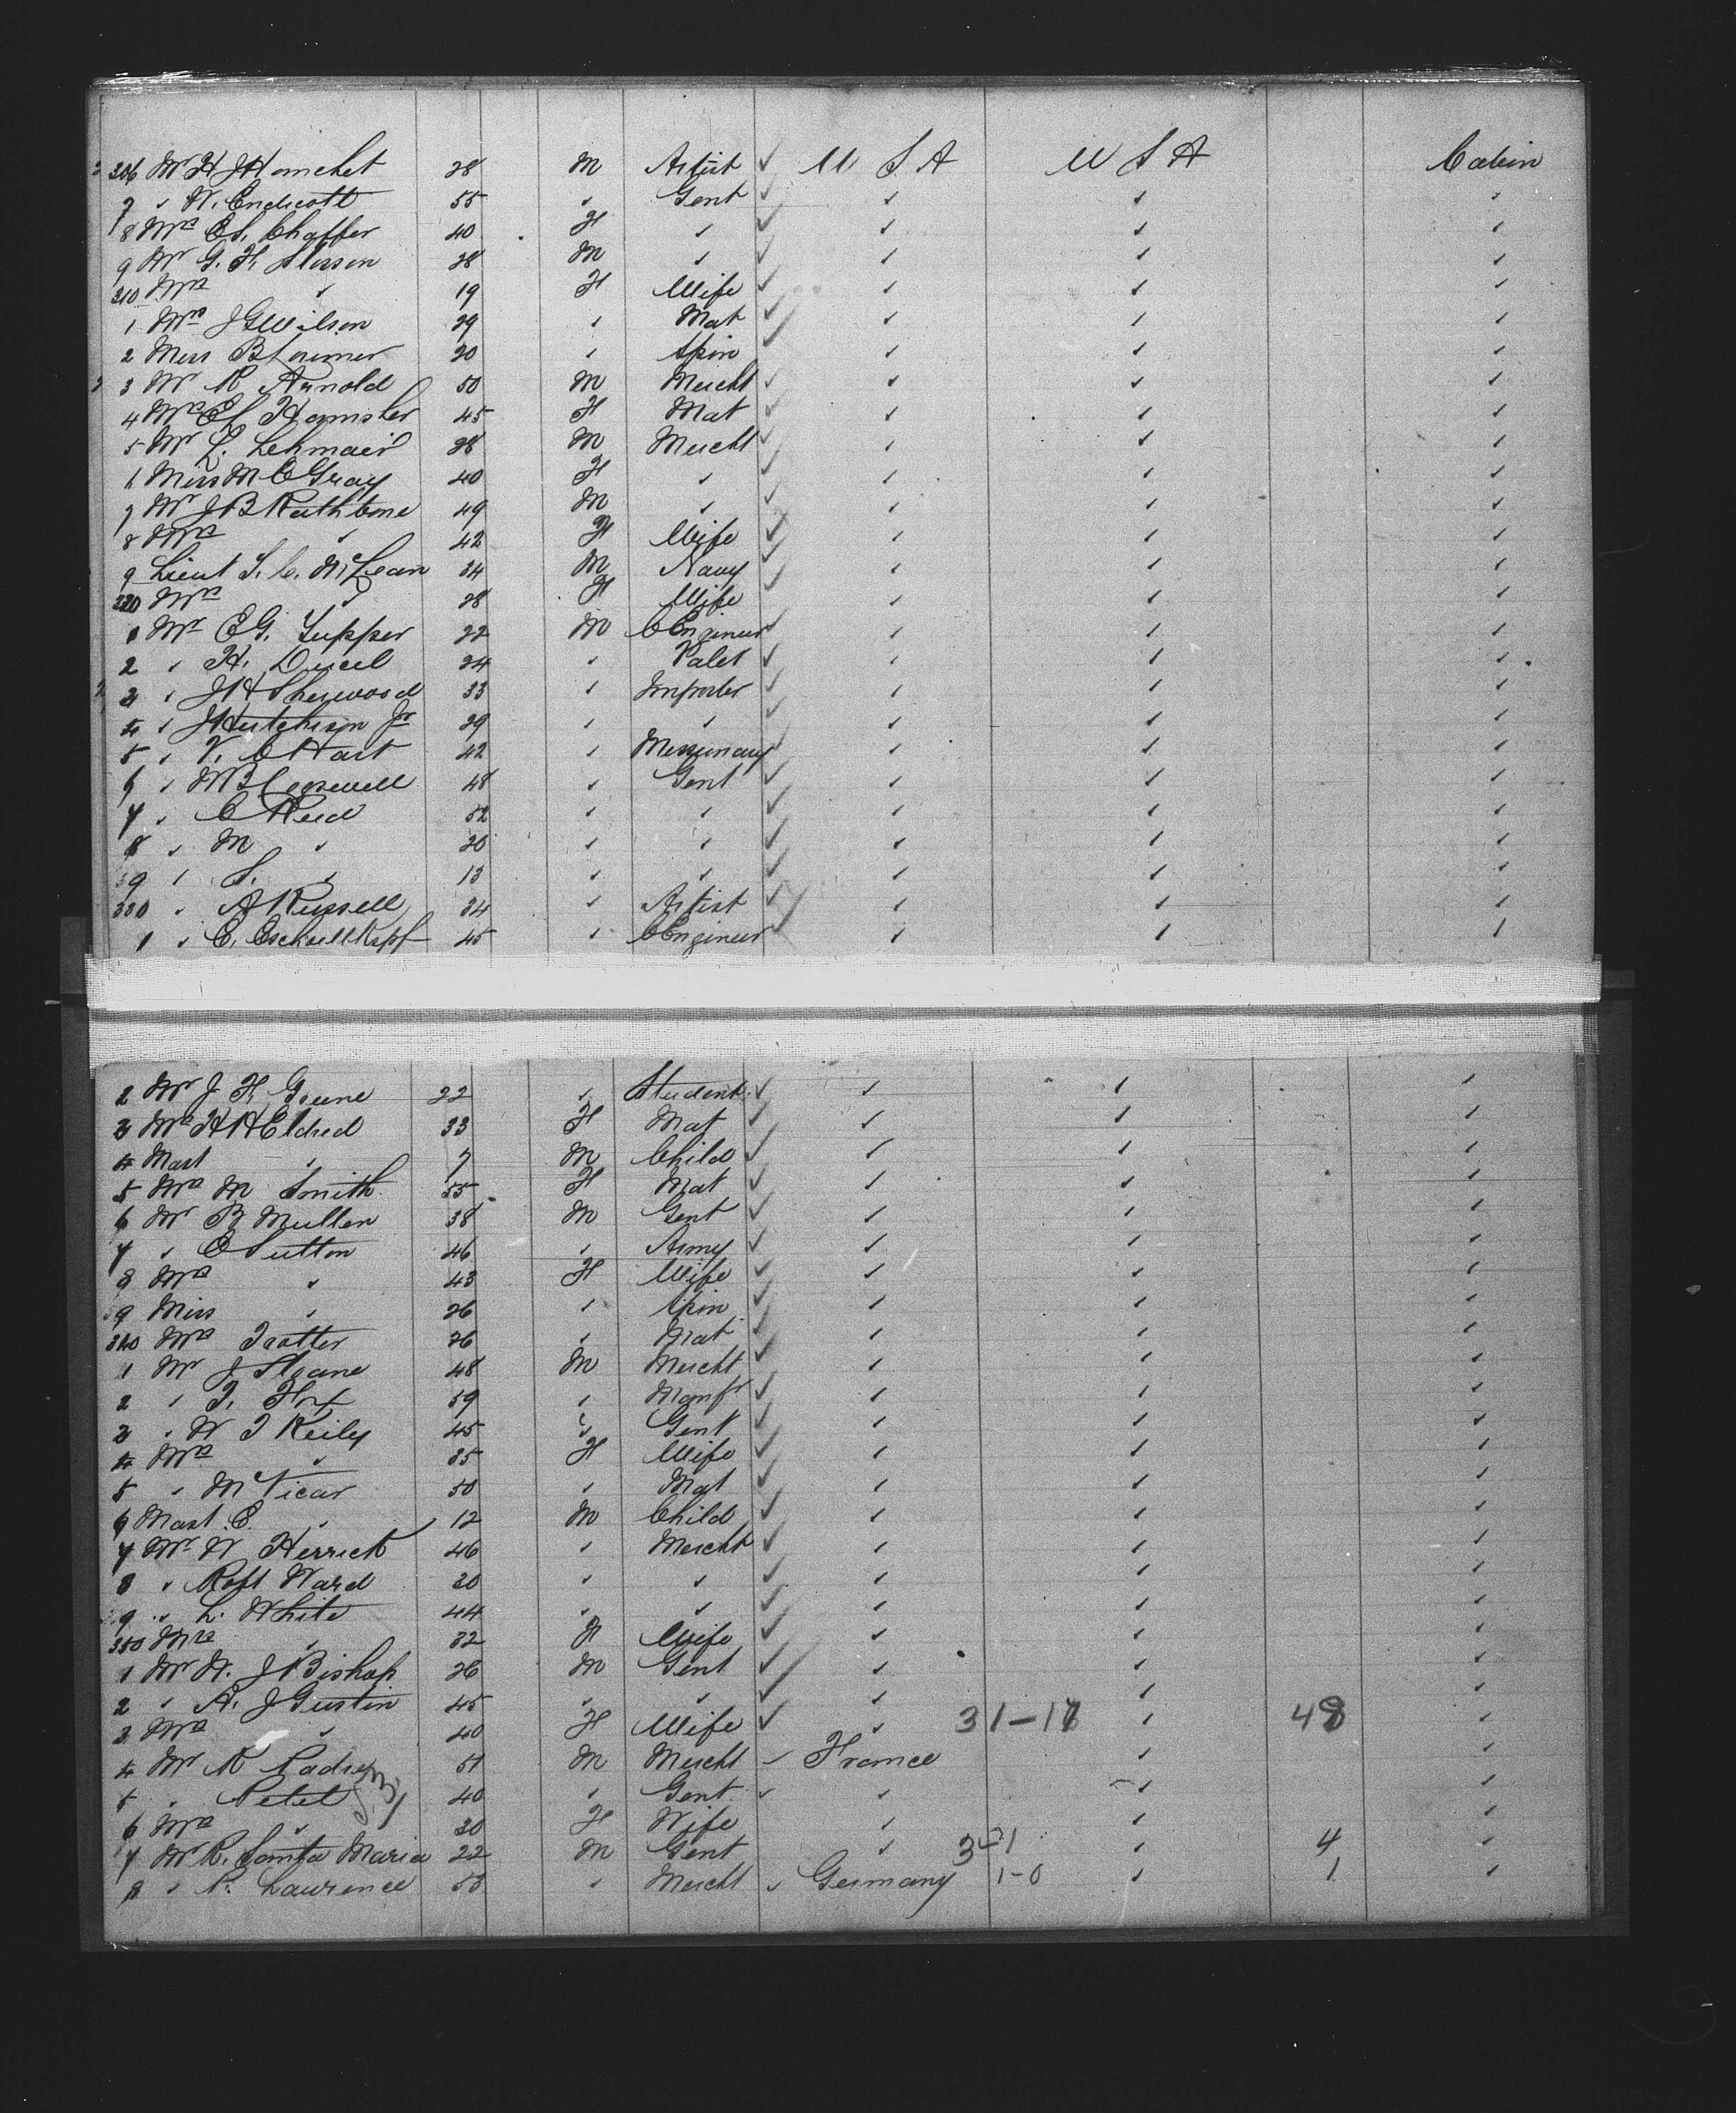 306 Mr H J Homchet 28 M Artist ✓ U S A U S A Cabin
7 " W. Endicott 55 " Gent ✓ " " "
8 Mrs E S. Chaffer 40 F " ✓ " " "
9 Mr G. F. Slosson 28 M " ✓ " " "
310 Mrs " 19 F Wife ✓ " " "
1 Mrs J G Wilson 29 " Mat ✓ " " "
2 Miss B Lorimer 20 " Spin ✓ " " "
3 Mr R Arnold 50 M Mercht ✓ " " "
4 Mrs E S Hamsher 45 F Mat ✓ " " "
5 Mr L. Lehmair 28 M Mercht ✓ " " "
6 Miss M E Gray 40 F " ✓ " " "
7 Mr J B Rathbone 49 M " ✓ " " "
8 Mrs " 42 F Wife ✓ " " "
9 Lieut T. C. McLean 34 M Navy ✓ " " "
320 Mrs " 28 F Wife ✓ " " "
1 Mr E G. Tupper 22 M C Engineer ✓ " " "
2 " H. Ducel 24 " Valet ✓ " " "
3 " J H Sherwood 33 " Importer ✓ " " "
4 " J Hutchison Jr 29 " " ✓ " " "
5 " V. C Hart 42 " Missionary ✓ " " "
6 " W B Cogswell 48 " Gent ✓ " " "
7 " C Reid 52 " " ✓ " " "
8 " M " 20 " " ✓ " " "
9 " S. " 13 " " ✓ " " "
330 " A Russell 34 " Artist ✓ " " "
1 " E. Eschoellkopf 45 " C Engineer ✓ " " "
2 Mr J H Greene 22 " Student ✓ " " "
3 Mrs H H Eldred 33 F Mat ✓ " " "
4 Mast " 7 M Child ✓ " " "
5 Mrs M Smith 55 F Mat ✓ " " "
6 Mr B Mullen 38 M Gent ✓ " " "
7 " E Sutton 46 " Army ✓ " " "
8 Mrs " 43 F Wife ✓ " " "
9 Miss " 26 " Spin ✓ " " "
340 Mrs Trotter 26 " Mat ✓ " " "
1 Mr J Sloane 48 M Mercht ✓ " " "
2 " T. Fox 59 " Manfr ✓ " " "
3 " W J Reily 45 " Gent ✓ " " "
4 Mrs " 35 F Wife ✓ " " "
5 " McVicar 50 " Mat ✓ " " "
6 Mast. E. " 12 M Child ✓ " " "
7 Mr W Herrick 46 " Mercht ✓ " " "
8 " Robt Ward 30 " " ✓ " " "
9 " L. White 44 " " ✓ " " "
350 Mrs " 32 F Wife ✓ " " "
1 Mr W. J Bishop 26 M Gent ✓ " " "
2 " A. J Gustin 45 " " ✓ " " "
3 Mrs " 40 F Wife ✓ " 31-17 " 48 "
4 Mr R 51 M Mercht ✓ France " "
5 " Petel 40 " Gent ✓ " " "
6 Mrs " 30 F Wife " " "
7 Mr R. Santa Maria 22 M Gent " 3-1 " 4 "
8 " R. Lawrence 53 " Mercht ✓ Germany 1-0 " 1 "